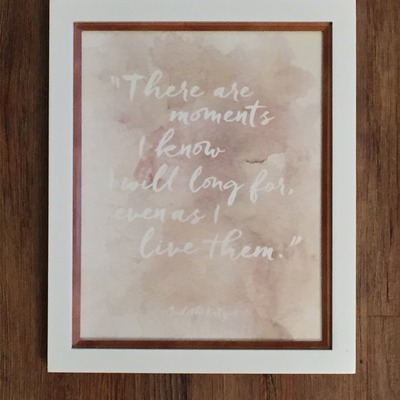 "There are
moments
I know
I will long for,
even as I
live them."